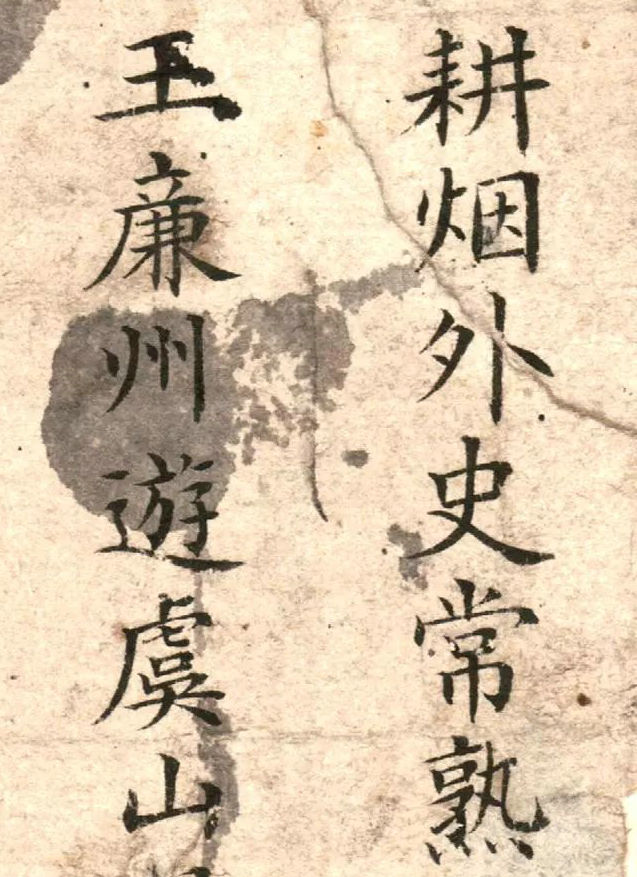 耕烟外史常熟
王廉州遊虞山